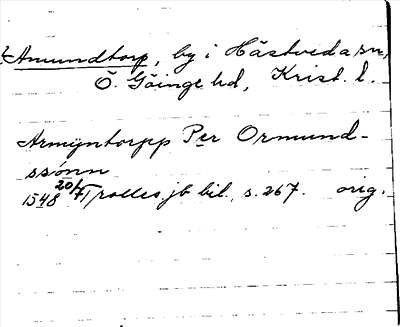 Amundtorp, by i Hästveda sn,
Ö. Göinge hd, Krist. l.
Armÿntorpp Per Ormund-
ssónn
1548 20/7 Trolles jb bil., s. 267. orig.